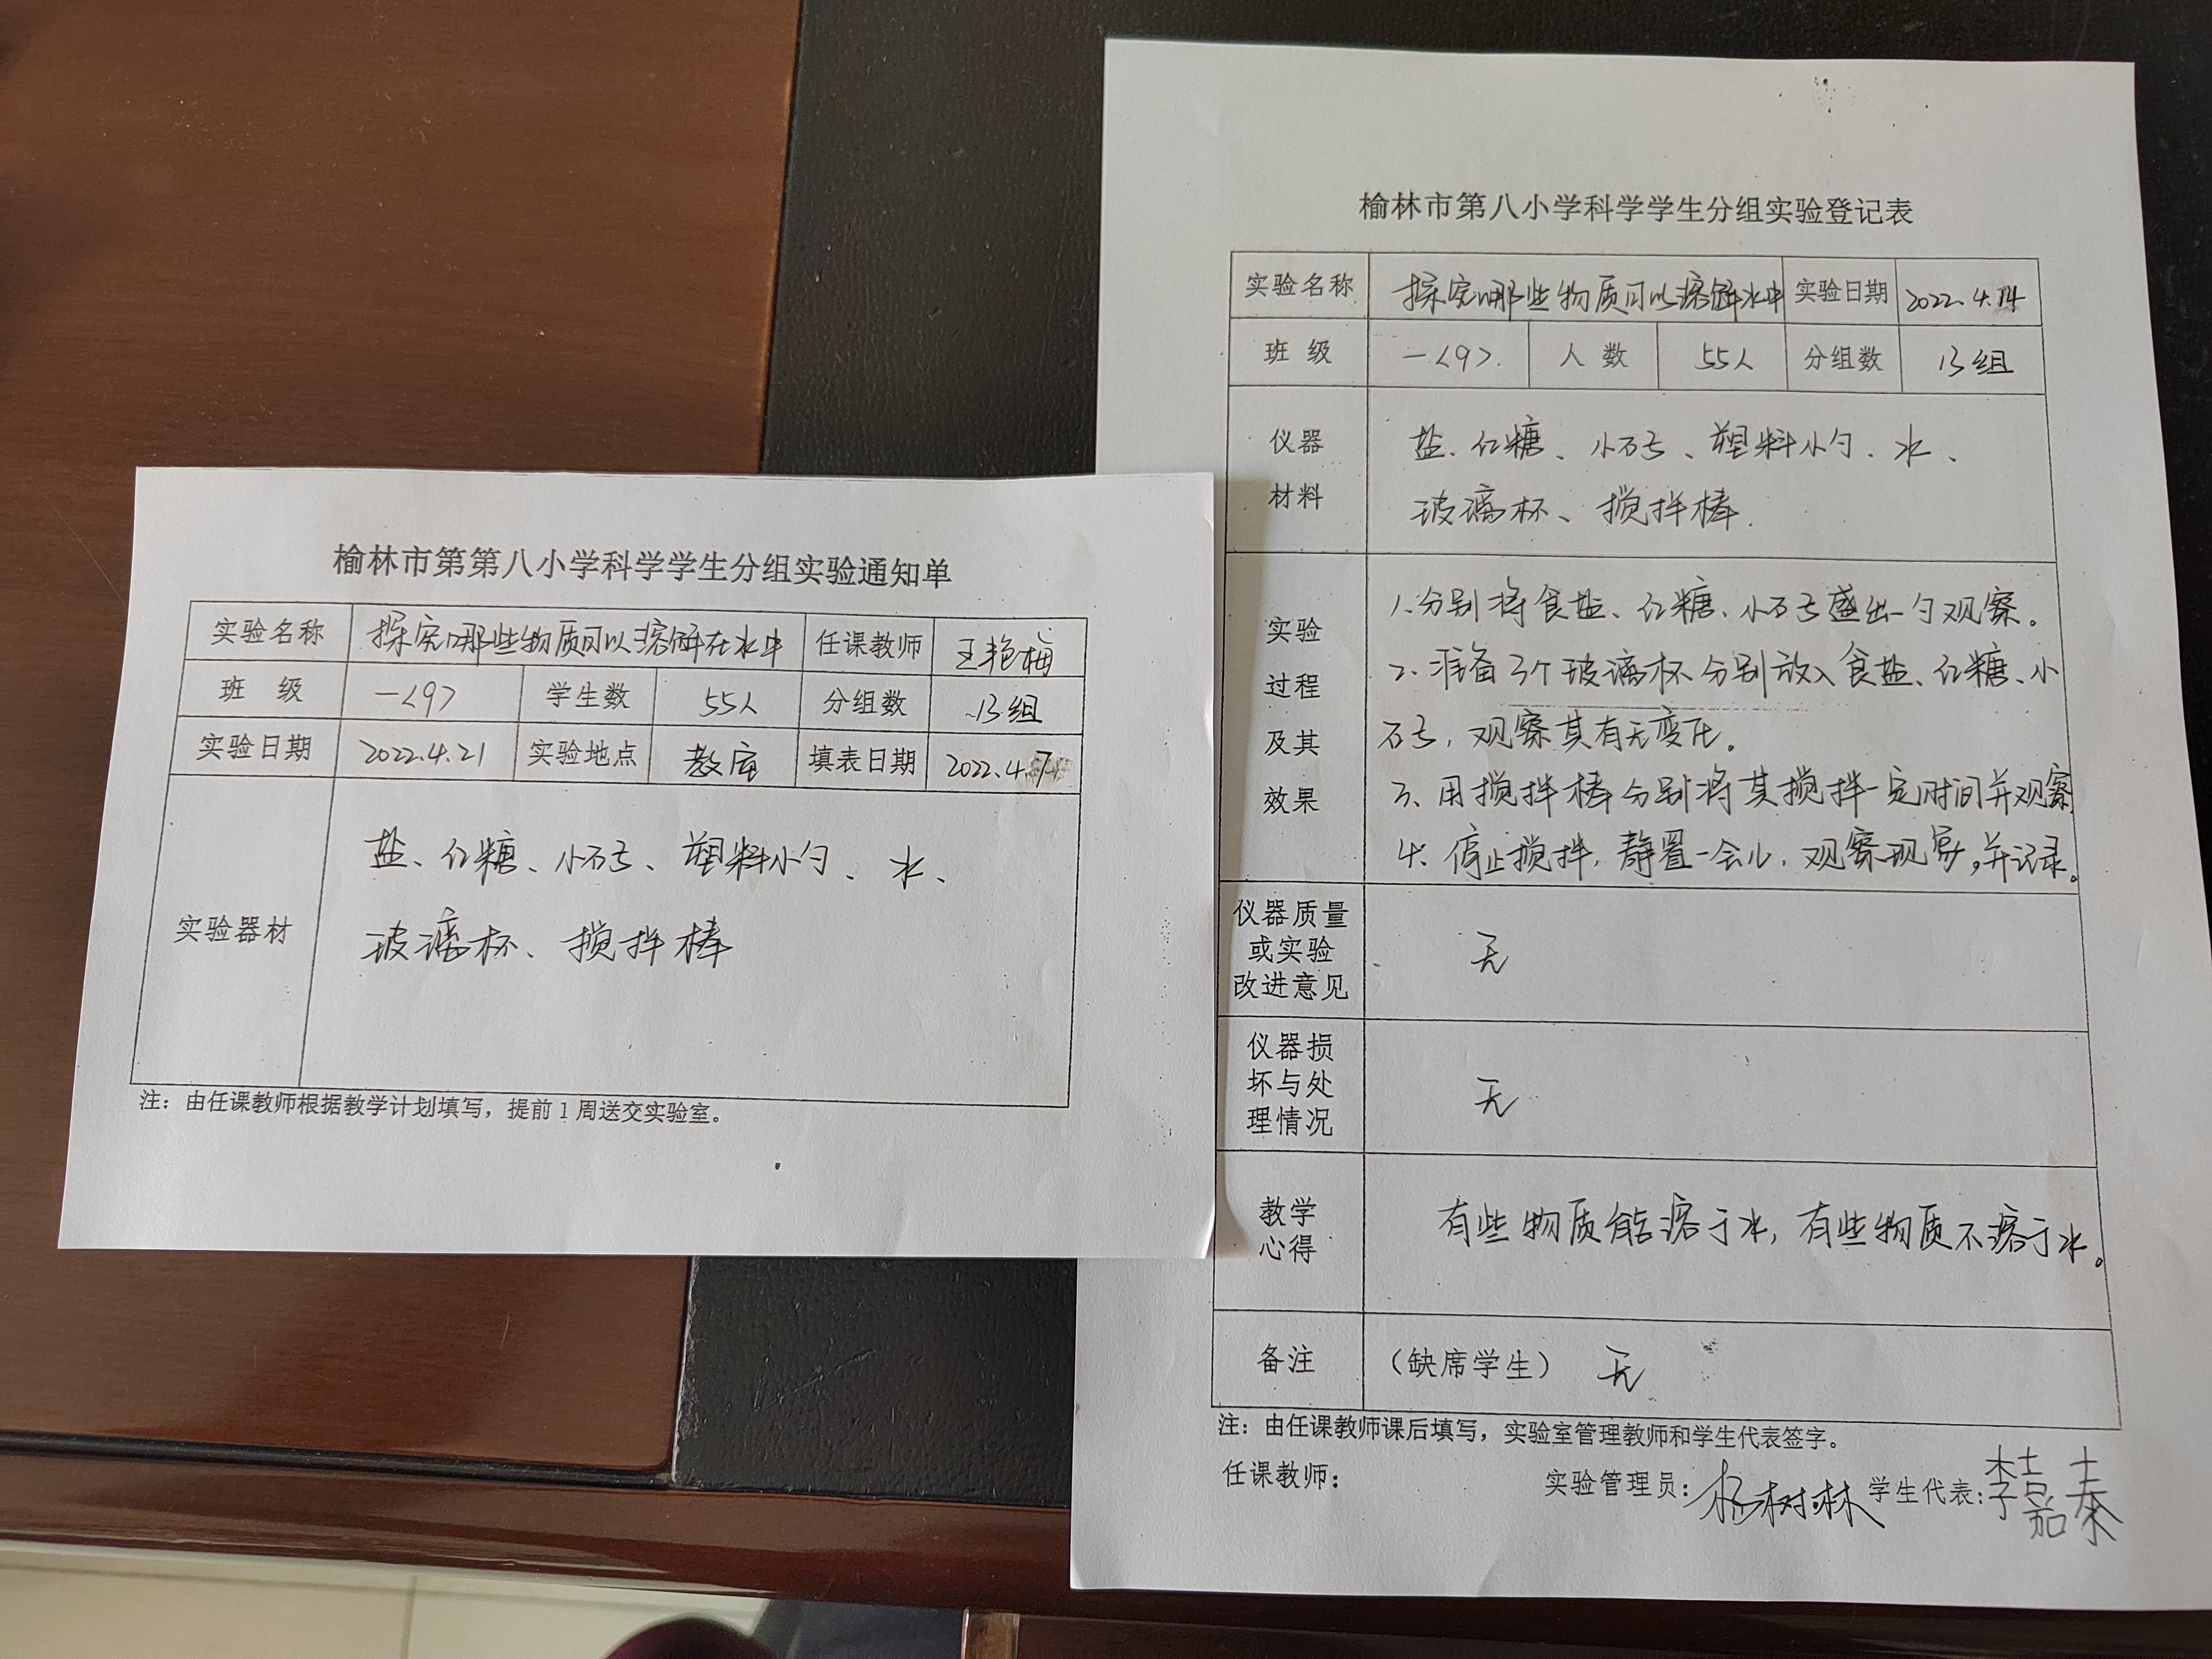 榆林市第第八小学科学学生分组实验通知单
实验名称 探究哪些物质可以溶解在水中 任课教师 王艳梅
班 级 一<9> 学生数 55人 分组数 13组
实验日期 2022.4.21 实验地点 教室 填表日期 2022.4.7
实验器材
盐、红糖、小石子、塑料小勺、水、
玻璃杯、搅拌棒
注：由任课教师根据教学计划填写，提前1周送交实验室。
榆林市第八小学科学学生分组实验登记表
实验名称 探究哪些物质可以溶解水中 实验日期 2022.4.14
班 级 一<9>. 人 数 55人 分组数 13组
仪器
材料
盐、红糖、小石子、塑料小勺、水、
玻璃杯、搅拌棒.
实验
过程
及其
效果
1.分别将食盐、红糖、小石子盛出一勺观察。
2.准备3个玻璃杯分别放入食盐、红糖、小
石子，观察其有无变化。
3、用搅拌棒分别将其搅拌一定时间并观察
4、停止搅拌，静置一会儿，观察现象，并记录。
仪器质量
或实验
改进意见
无
仪器损
坏与处
理情况
无
教学
心得
有些物质能溶于水，有些物质不溶于水。
备注 （缺席学生） 无
注：由任课教师课后填写，实验室管理教师和学生代表签字。
任课教师： 实验管理员：杨树林 学生代表：李嘉泰